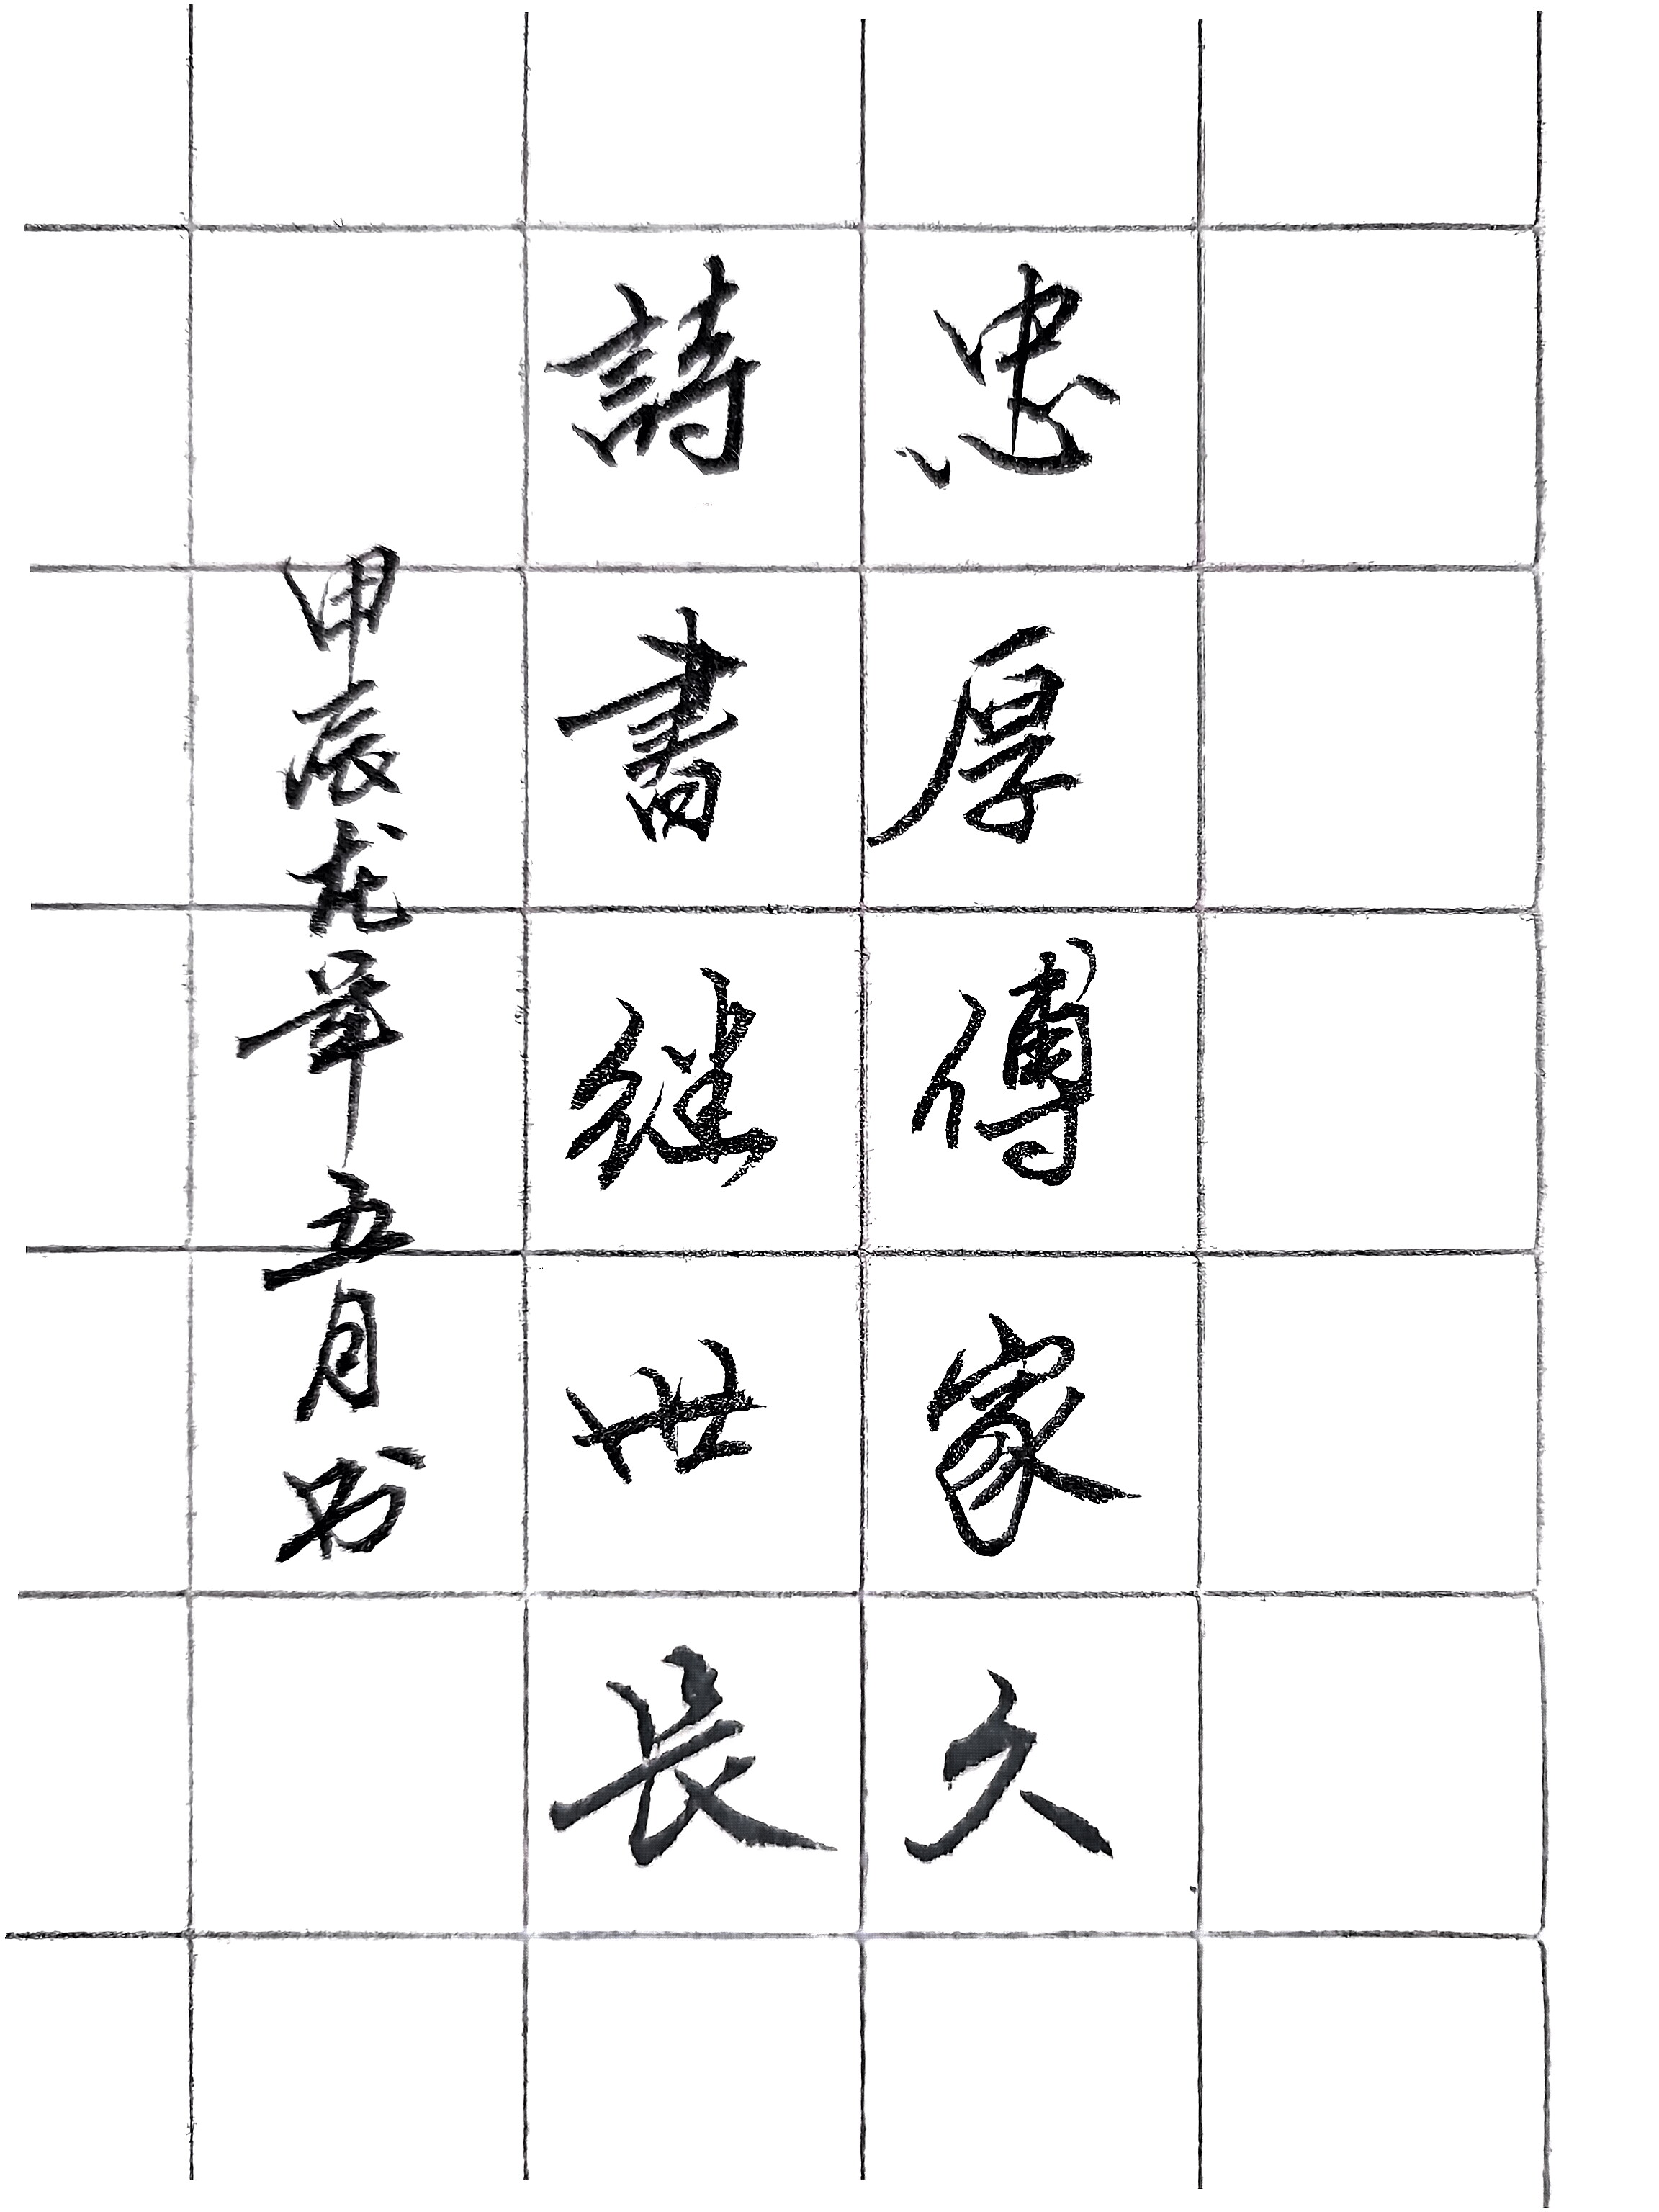 忠厚傳家久
詩書继世長
甲辰龙年五月书